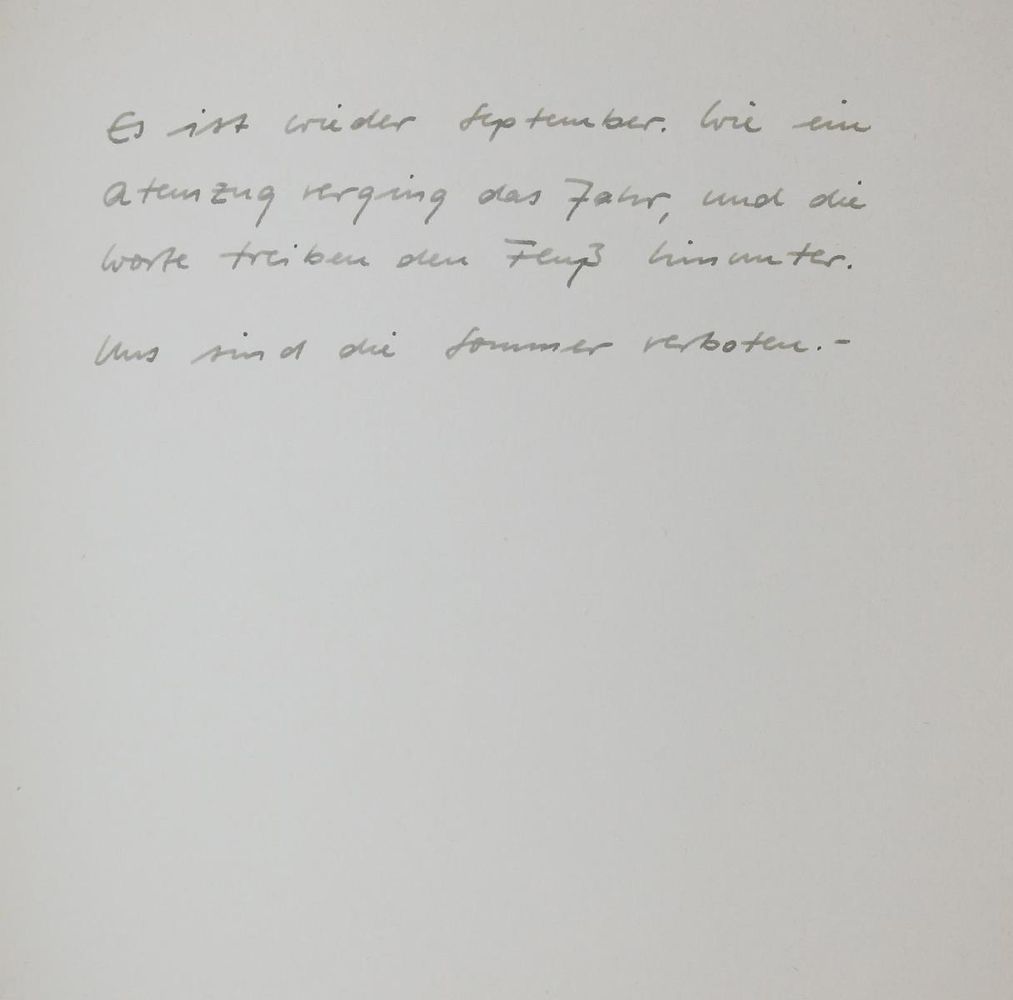 Es ist wieder September. Wie ein
Atemzug verging das Jahr, und die
Worte treiben den Fluß hinunter.
Uns sind die Sommer verboten.-